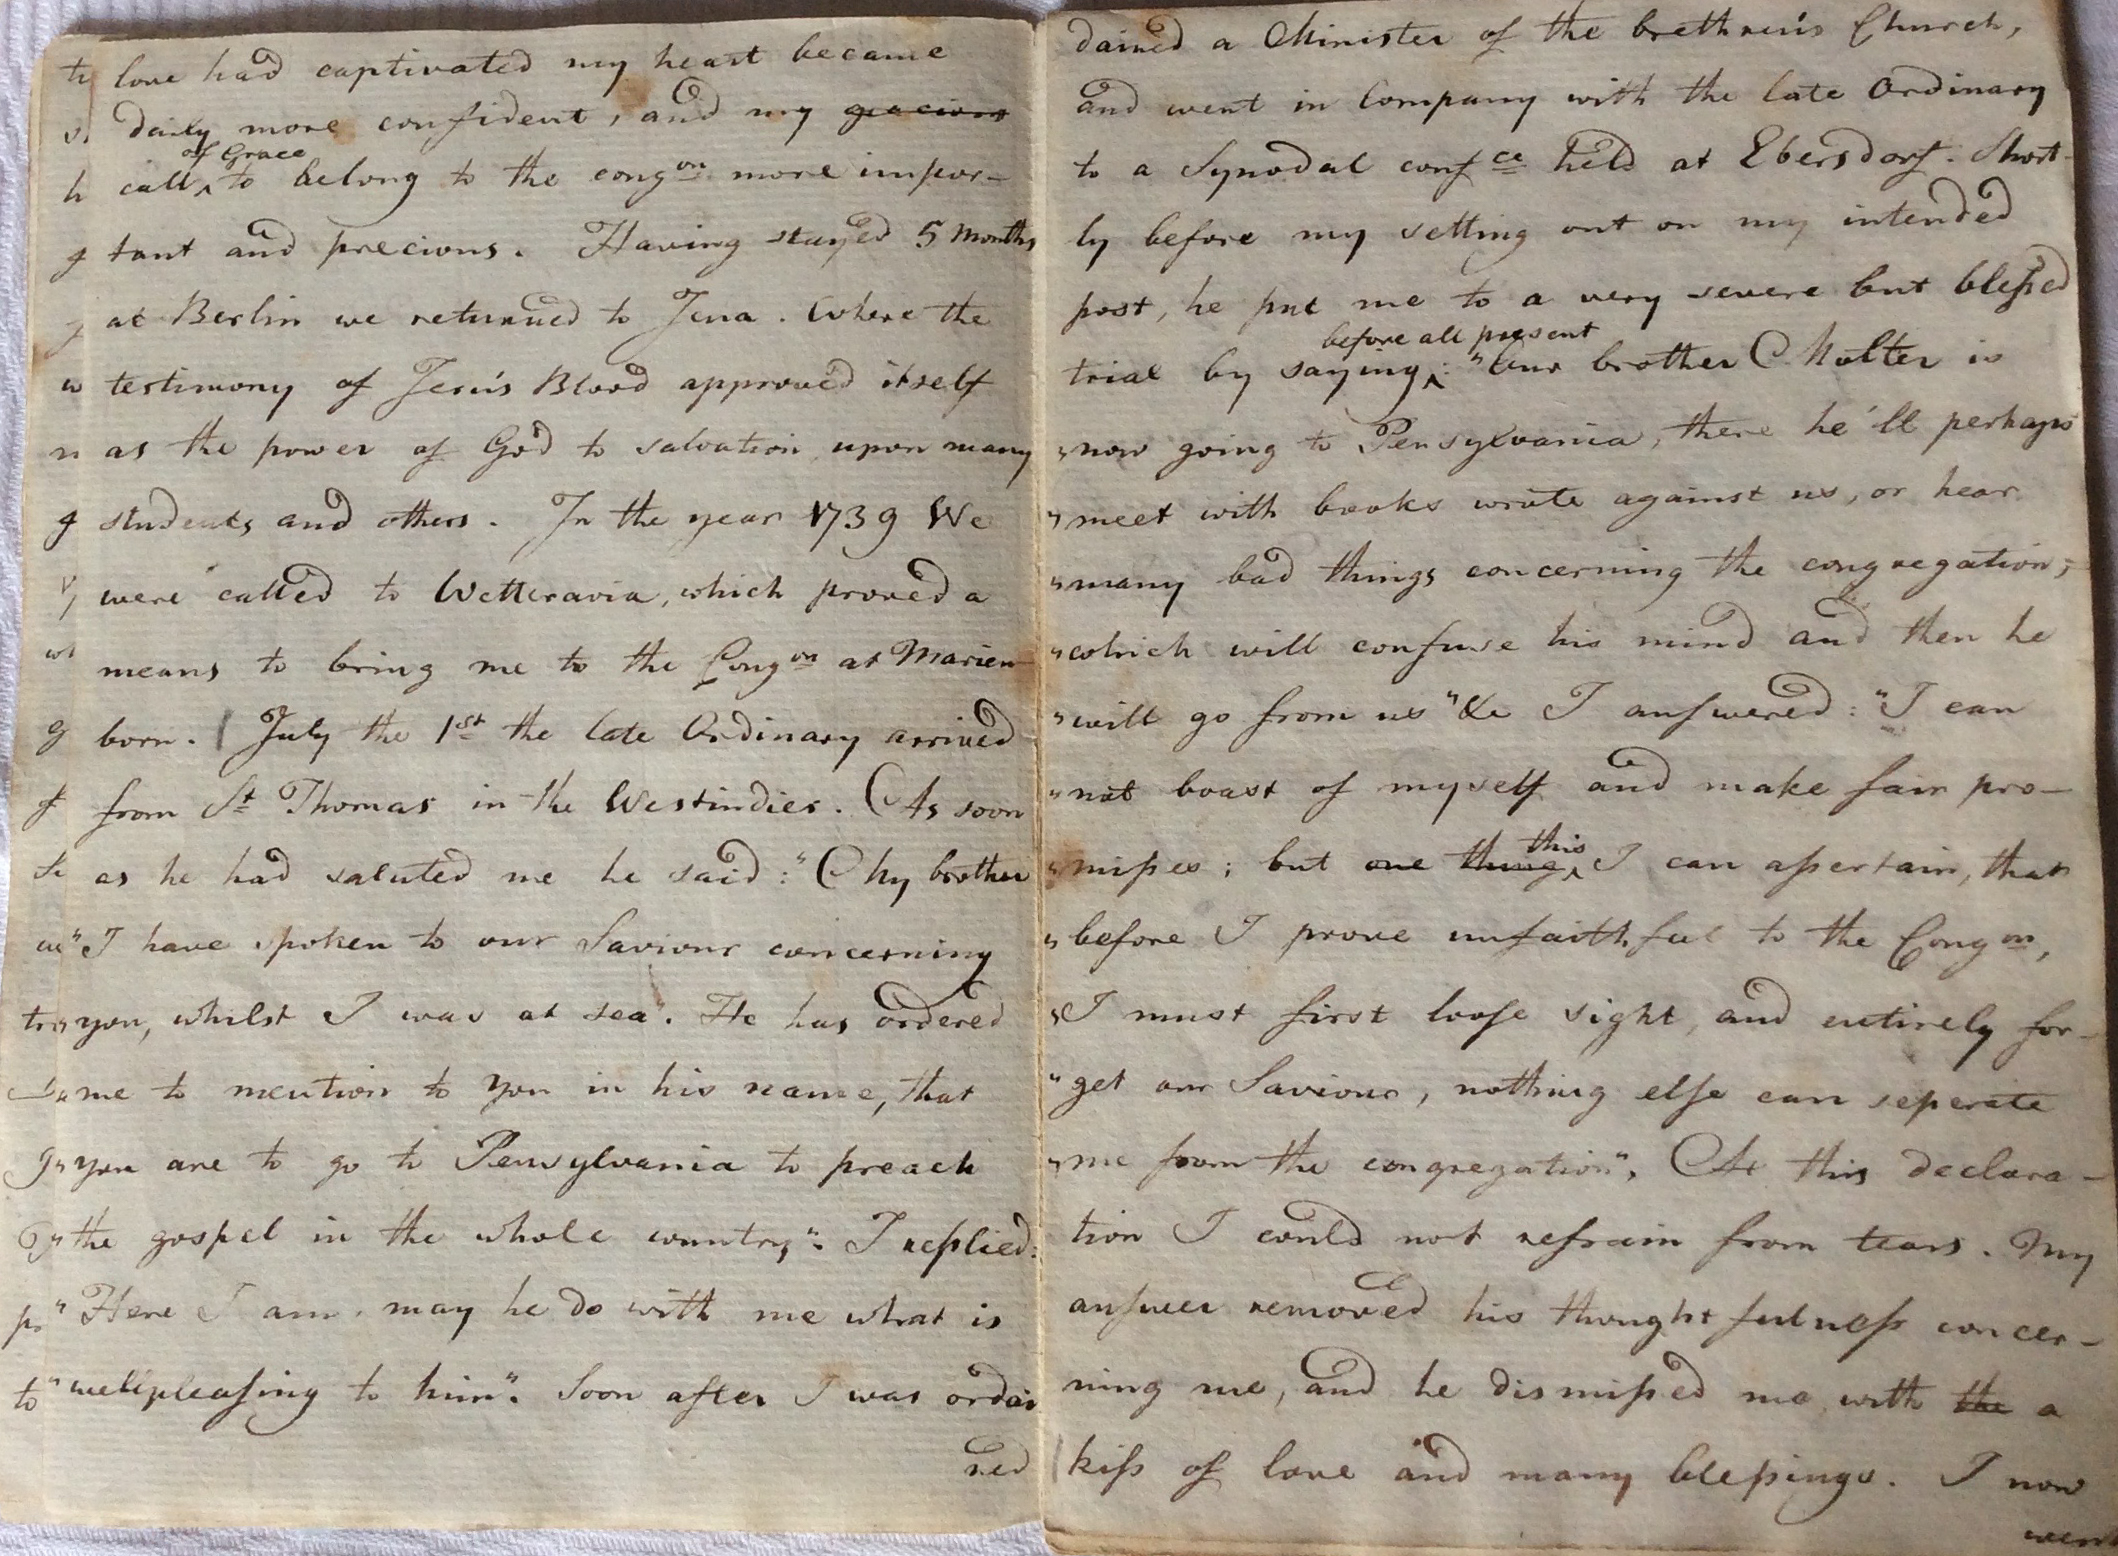 love had captivated my heart became
daily more confident, and my gracious
of Grace
call ‸ to belong to the congon more impor-
tant and precious. Having stayed 5 Months
at Berlin we returned to Jena. Where the
testimony of Jesu's Blood approved itself
as the power of God to salvation upon many
students and others. In the year 1739 We
were called to Wetteravia, which proved a
means to bring me to the Congon at Marien-
born. | July the 1st the late Ordinary arrived
from St Thomas in the Westindies. As soon
as he had saluted me he said: "My brother
"I have spoken to our Saviour concerning
"you, whilst I was at sea". He has ordered
"me to mention to you in his name, that
"you are to go to Pensylvania to preach
"the gospel in the whole country". I replied:
"Here I am, may he do with me what is
"wellpleasing to him". Soon after I was ordai
ned
dained a Minister of the brethren's Church,
and went in Company with the late Ordinary
to a Synodal confce held at Ebersdorf. Short-
ly before my setting out on my intended
post, he put me to a very severe but blessed
before all present
trial by saying ‸: "Our brother Molter is
"now going to Pensylvania, there he'll perhaps
"meet with books wrote against us, or hear
"many bad things concerning the congregation,
"which will confuse his mind and then he
"will go from us" &c I answered: "I can
"not boast of myself and make fair pro-
this
"misses; but one thing ‸ I can assertain, that
"before I prove unfaithful to the Congon,
"I must first loose sight, and entirely for-
"get our Saviour, nothing else can seperate
"me from the congregation". At this declara-
tion I could not refrain from tears. My
answer removed his thoughtfulness concer-
ning me, and he dismissed me with the a
kiss of love and many blessings. I now
went